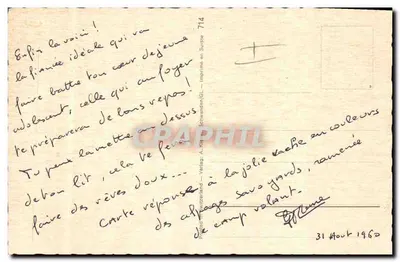 Enfin la voici !
la fiancée idéale qui va
faire battre ton cœur de jeune
adolescent, celle qui au foyer
te préparera de bons repas !
Tu peux la mettre au dessus
de ton lit, cela te fera
faire des rêves doux...
Carte réponse à la jolie vache en couleurs
des alpages savoyards, ramenée
de camp volant.
31 Août 1960
714
CPARAMA